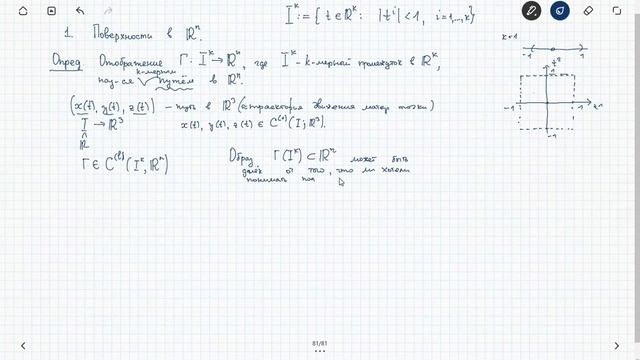 I^k := { t ∈ ℝ^k : |t^i| < 1, i=1,...,k }
1. Поверхности в ℝⁿ.
Опред Отображение Γ: I^k → ℝⁿ, где I^k - k-мерный промежуток в ℝ^k,
наз-ся k-мерным путём в ℝⁿ.
(x(t), y(t), z(t)) - путь в ℝ³ (траектория движения матер точки)
I → ℝ³ x(t), y(t), z(t) ∈ (I; ℝ³).
∩
ℝ
Γ ∈ C^(l)(I^k, ℝⁿ)
Образ Γ(I^k) ⊂ ℝⁿ может быть
далёк от того, что мы хотели
понимать под
k=1
-1 1
t²
1
-1 1 t1
-1
81/81